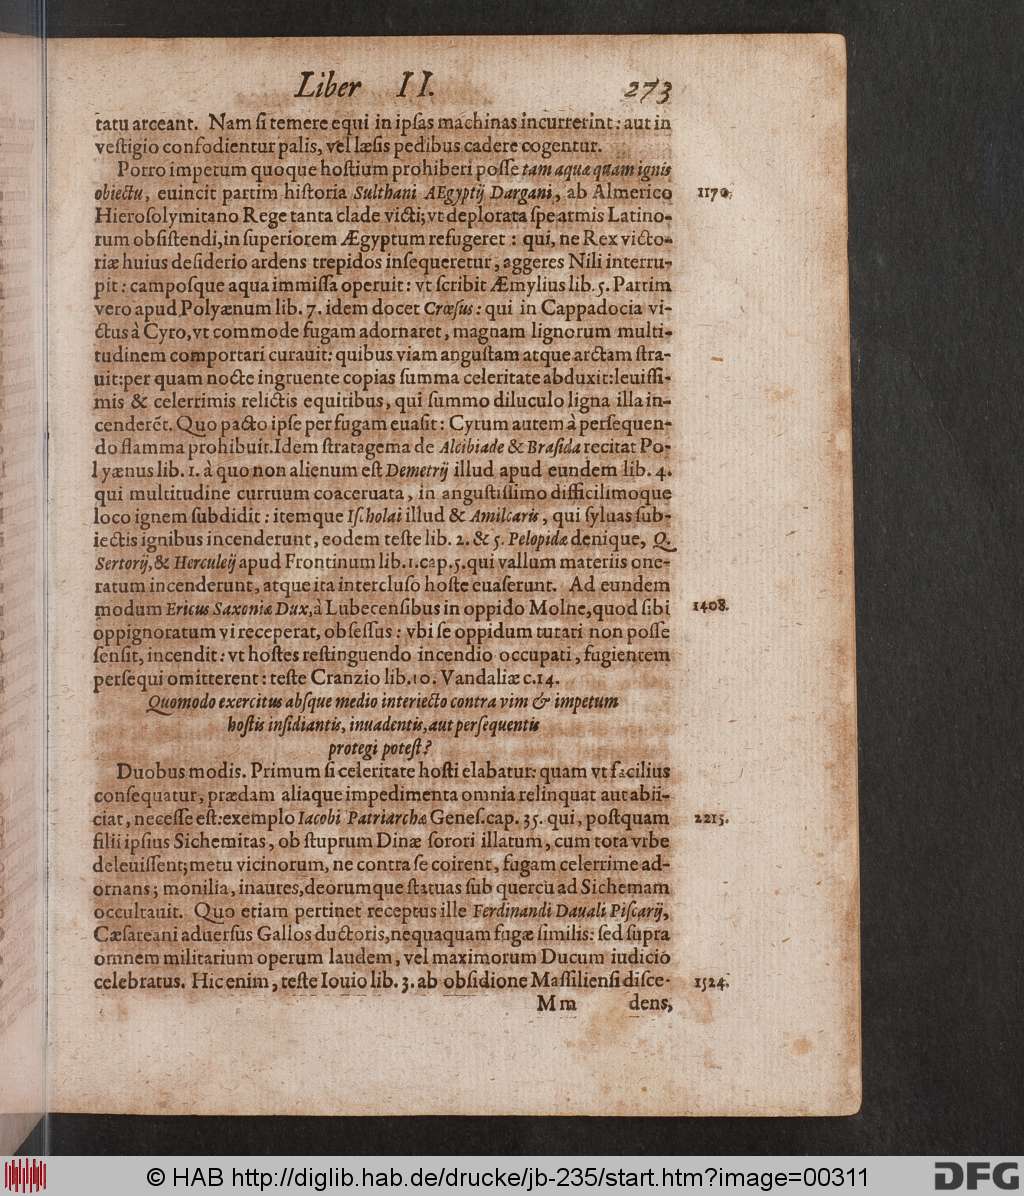 Liber II. 273
tatu arceant. Nam ſi temere equi in ipſas machinas incurrerint: aut in
veſtigio confodientur palis, vel læſis pedibus cadere cogentur.
Porro impetum quoque hoſtium prohiberi poſſe tam aquæ quam ignis
obiectu, euincit partim hiſtoria Sulthani AEgyptij Dargani, ab Almerico 1170.
Hieroſolymitano Rege tanta clade victi; vt deplorata ſpe armis Latino-
rum obſiſtendi, in ſuperiorem Ægyptum refugeret : qui, ne Rex victo-
riæ huius deſiderio ardens trepidos inſequeretur, aggeres Nili interru-
pit : campoſque aqua immiſſa operuit : vt ſcribit Æmylius lib. 5. Partim
vero apud Polyænum lib. 7. idem docet Crœſus : qui in Cappadocia vi-
ctus à Cyro, vt commode fugam adornaret, magnam lignorum multi-
tudinem comportari curauit: quibus viam anguſtam atque arctam ſtra-
uit: per quam nocte ingruente copias ſumma celeritate abduxit: leuiſſi-
mis & celerrimis relictis equitibus, qui ſummo diluculo ligna illa in-
cenderēt. Quo pacto ipſe per fugam euaſit: Cyrum autem à perſequen-
do flamma prohibuit. Idem ſtratagema de Alcibiade & Braſida recitat Po-
lyænus lib. 1. à quo non alienum eſt Demetrij illud apud eundem lib. 4.
qui multitudine curruum coaceruata, in anguſtiſſimo difficilimoque
loco ignem ſubdidit : itemque Iſcholai illud & Amilcaris, qui ſyluas ſub-
iectis ignibus incenderunt, eodem teſte lib. 2. & 5. Pelopidæ denique, Q.
Sertorij, & Herculeij apud Frontinum lib. 1. cap. 5. qui vallum materiis one-
ratum incenderunt, atque ita intercluſo hoſte euaſerunt. Ad eundem
modum Ericus Saxoniæ Dux, à Lubecenſibus in oppido Molne, quod ſibi 1408.
oppignoratum vi receperat, obſeſſus : vbi ſe oppidum tutari non poſſe
ſenſit, incendit : vt hoſtes reſtinguendo incendio occupati, fugientem
perſequi omitterent : teſte Cranzio lib. 10. Vandaliæ c. 14.
Quomodo exercitus abſque medio interiecto contra vim & impetum
hoſtis inſidiantis, inuadentis, aut perſequentis
protegi poteſt?
Duobus modis. Primum ſi celeritate hoſti elabatur: quam vt facilius
conſequatur, prædam aliaque impedimenta omnia relinquat aut abii-
ciat, neceſſe eſt: exemplo Iacobi Patriarchæ Geneſ. cap. 35. qui, poſtquam 2215.
filii ipſius Sichemitas, ob ſtuprum Dinæ ſorori illatum, cum tota vrbe
deleuiſſent; metu vicinorum, ne contra ſe coirent, fugam celerrime ad-
ornans ; monilia, inaures, deorumque ſtatuas ſub quercu ad Sichemam
occultauit. Quo etiam pertinet receptus ille Ferdinandi Dauali Piſcarij,
Cæſareani aduerſus Gallos ductoris, nequaquam fugæ ſimilis: ſed ſupra
omnem militarium operum laudem, vel maximorum Ducum iudicio
celebratus. Hic enim, teſte Iouio lib. 3. ab obſidione Maſſilienſi diſce- 1524.
M m dens,
© HAB http://diglib.hab.de/drucke/jb-235/start.htm?image=00311 DFG